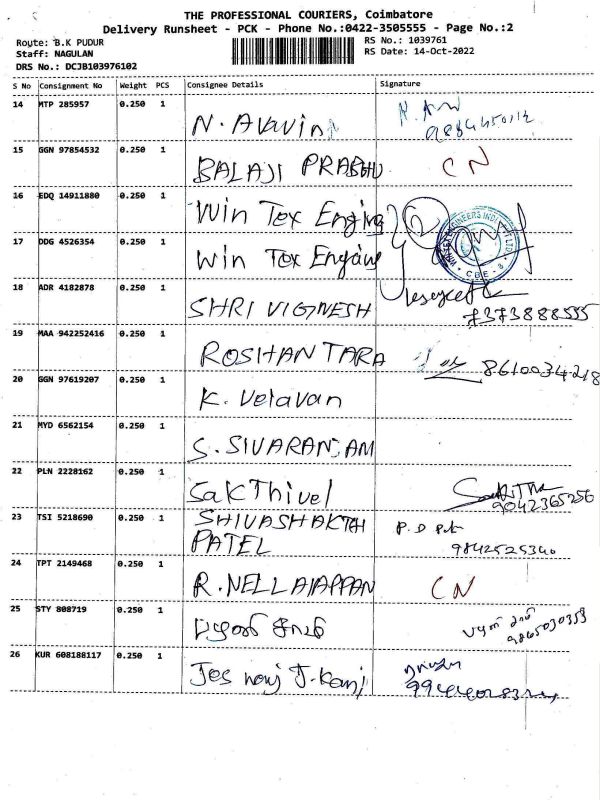 THE PROFESSIONAL COURIERS, Coimbatore
Delivery Runsheet - PCK - Phone No.:0422-3505555 - Page No.:2
Route: B.K PUDUR
RS No.: 1039761
Staff: NAGULAN
RS Date: 14-Oct-2022
DRS No.: DCJB103976102
S No Consignment No Weight PCS Consignee Details Signature
14 MTP 285957 0.250 1 N. Aravin
15 GGN 97854532 0.250 1 BALAJI PRABHU CN
16 EDQ 14911880 0.250 1 Win Tex Enging 2
17 DDG 4526354 0.250 1 Win Tex Enging
18 ADR 4182878 0.250 1 SHRI VIGNESH 7373888555
19 MAA 942252416 0.250 1 ROSHAN TARA 8610034218
20 GGN 97619207 0.250 1 K. Velavan
21 MYD 6562154 0.250 1 S. SIVARANJAM
22 PLN 2228162 0.250 1 SakThivel 9042365256
23 TSI 5218690 0.250 1 SHIVASHAKTHI PATEL 9842525340
24 TPT 2149468 0.250 1 R. NELLAIAPPAN CN
25 STY 808719 0.250 1 9865030353
26 KUR 608188117 0.250 1